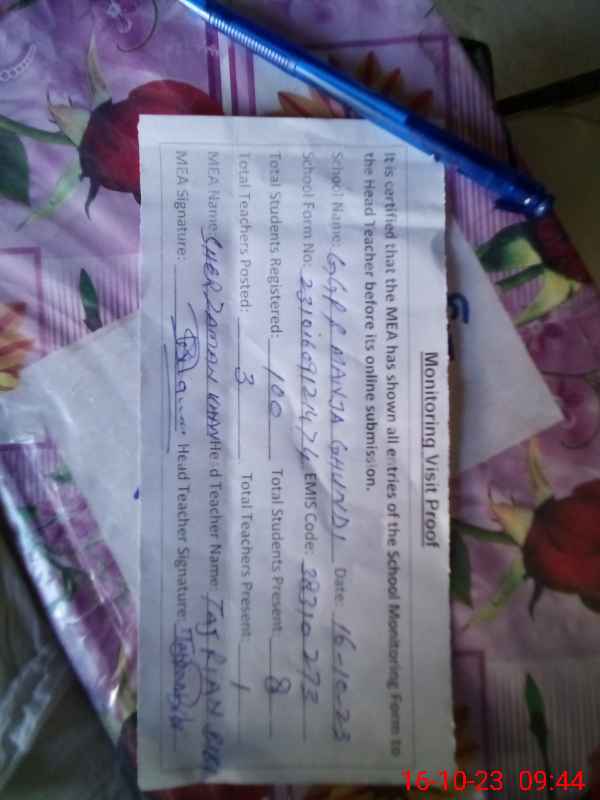 Monitoring Visit Proof
It is certified that the MEA has shown all entries of the School Monitoring Form to
the Head Teacher before its online submission.
School Name: GGPS MANJA GHUNDI Date: 16-10-23
School Form No: EMIS Code: 28710273
Total Students Registered: 100 Total Students Present: 8
Total Teachers Posted: 3 Total Teachers Present: 1
MEA Name: SHER ZAMAN KHAN Head Teacher Name: TAJ RIAN BIBI
MEA Signature: Head Teacher Signature:
16-10-23 09:44